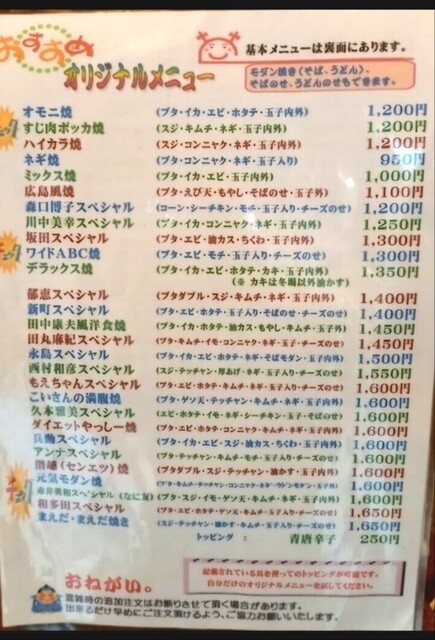 おすすめ
オリジナルメニュー
基本メニューは裏面にあります。
モダン焼き(そば、うどん)、
そばのせ、うどんのせもできます。
オモニ焼 (ブタ・イカ・エビ・ホタテ・玉子内外) 1,200円
すじ肉ポッカ焼 (スジ・キムチ・ネギ・玉子内外) 1,200円
ハイカラ焼 (スジ・コンニャク・ネギ・玉子内外) 1,200円
ネギ焼 (ブタ・コンニャク・ネギ・玉子入り) 950円
ミックス焼 (ブタ・イカ・エビ・玉子内外) 1,000円
広島風焼 (ブタ・えび天・もやし・そばのせ・玉子外) 1,100円
森口博子スペシャル (コーン・シーチキン・モチ・玉子入り・チーズのせ) 1,200円
川中美幸スペシャル (ブタ・イカ・コンニャク・ネギ・玉子内外) 1,250円
坂田スペシャル (ブタ・エビ・油カス・ちくわ・玉子内外) 1,300円
ワイドABC焼 (ブタ・エビ・モチ・玉子入り・チーズのせ) 1,300円
デラックス焼 (ブタ・イカ・エビ・ホタテ・カキ・玉子内外) 1,350円
(※ カキは冬場以外油かす)
郁恵スペシャル (ブタダブル・スジ・キムチ・ネギ・玉子内外) 1,400円
新町スペシャル (ブタ・エビ・ホタテ・玉子入り・そばのせ・チーズのせ) 1,400円
田中康夫風洋食焼 (ブタ・イカ・ホタテ・油カス・もやし・キムチ・玉子外) 1,450円
田丸麻紀スペシャル (ブタ・キムチ・イモ・コンニャク・ネギ・玉子入り・チーズのせ) 1,450円
永島スペシャル (ブタ・イカ・エビ・ホタテ・ネギ・そばモダン・玉子内外) 1,500円
西村和彦スペシャル (スジ・テッチャン・厚あげ・ネギ・玉子入り・チーズのせ) 1,550円
もえちゃんスペシャル (ブタ・エビ・ホタテ・キムチ・ネギ・モチ・玉子内外) 1,600円
こいさんの満腹焼 (ブタ・ゲソ天・テッチャン・キムチ・ネギ・玉子内外) 1,600円
久本雅美スペシャル (エビ・ホタテ・イモ・ネギ・シーチキン・玉子・そばのせ) 1,600円
ダイエットやっしー焼 (ブタ・エビ・ホタテ・コンニャク・キムチ・ネギ・玉子外) 1,600円
兵動スペシャル (ブタ・イカ・エビ・スジ・油カス・ちくわ・玉子内外) 1,600円
アンナスペシャル (ブタ・テッチャン・キムチ・モチ・玉子入り・チーズのせ) 1,600円
(センエツ)焼 (ブタダブル・スジ・テッチャン・油かす・ネギ・玉子内外) 1,600円
元気モダン焼 1,600円
赤井英和スペシャル (なに友) (ブタ・スジ・イモ・ゲソ天・キムチ・ネギ・玉子内外) 1,600円
和多田スペシャル (ブタ・エビ・ホタテ・キムチ・モチ・玉子入り・チーズのせ) 1,650円
まえだ・まえだ焼き (スジ・テッチャン・油かす・キムチ・玉子入り・チーズのせ) 1,650円
トッピング : 青唐辛子 250円
おねがい。
混雑時の追加注文はお断りさせて頂く場合があります。
出来るだけ早めにご注文頂けるよう、ご協力お願いいたします。
記載されている具を使ってのトッピングが可能です。
自分だけのオリジナルメニューを試してください。